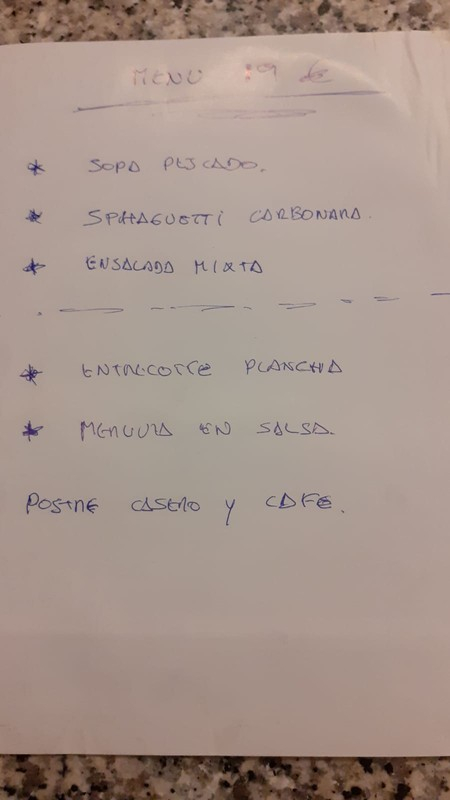 MENU :9 €
* SOPA PESCADO.
* SPHAGUETTI CARBONARA.
* ENSALADA MIXTA
* ENTRECOTTE PLANCHA
* MERLUZA EN SALSA.
POSTRE CASERO Y CAFE.